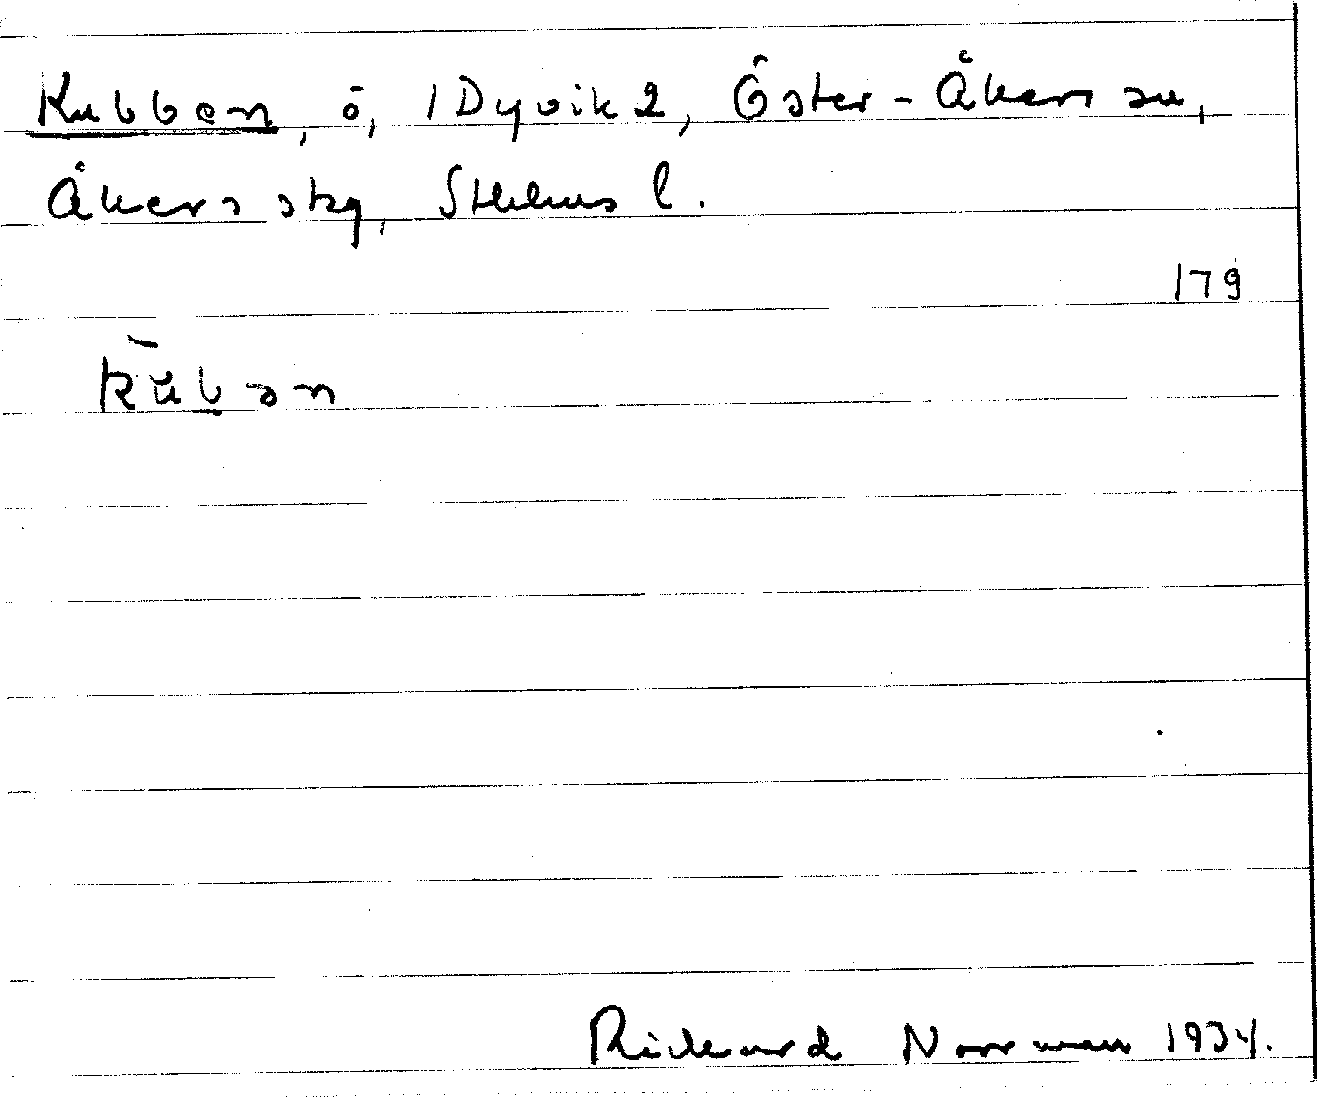 Kubben, ö, 1 Dyvik 2, Öster-Åkers sn,
Åkers skg, Sthlms l.
179
kubən
Rickard Norrman 1934.